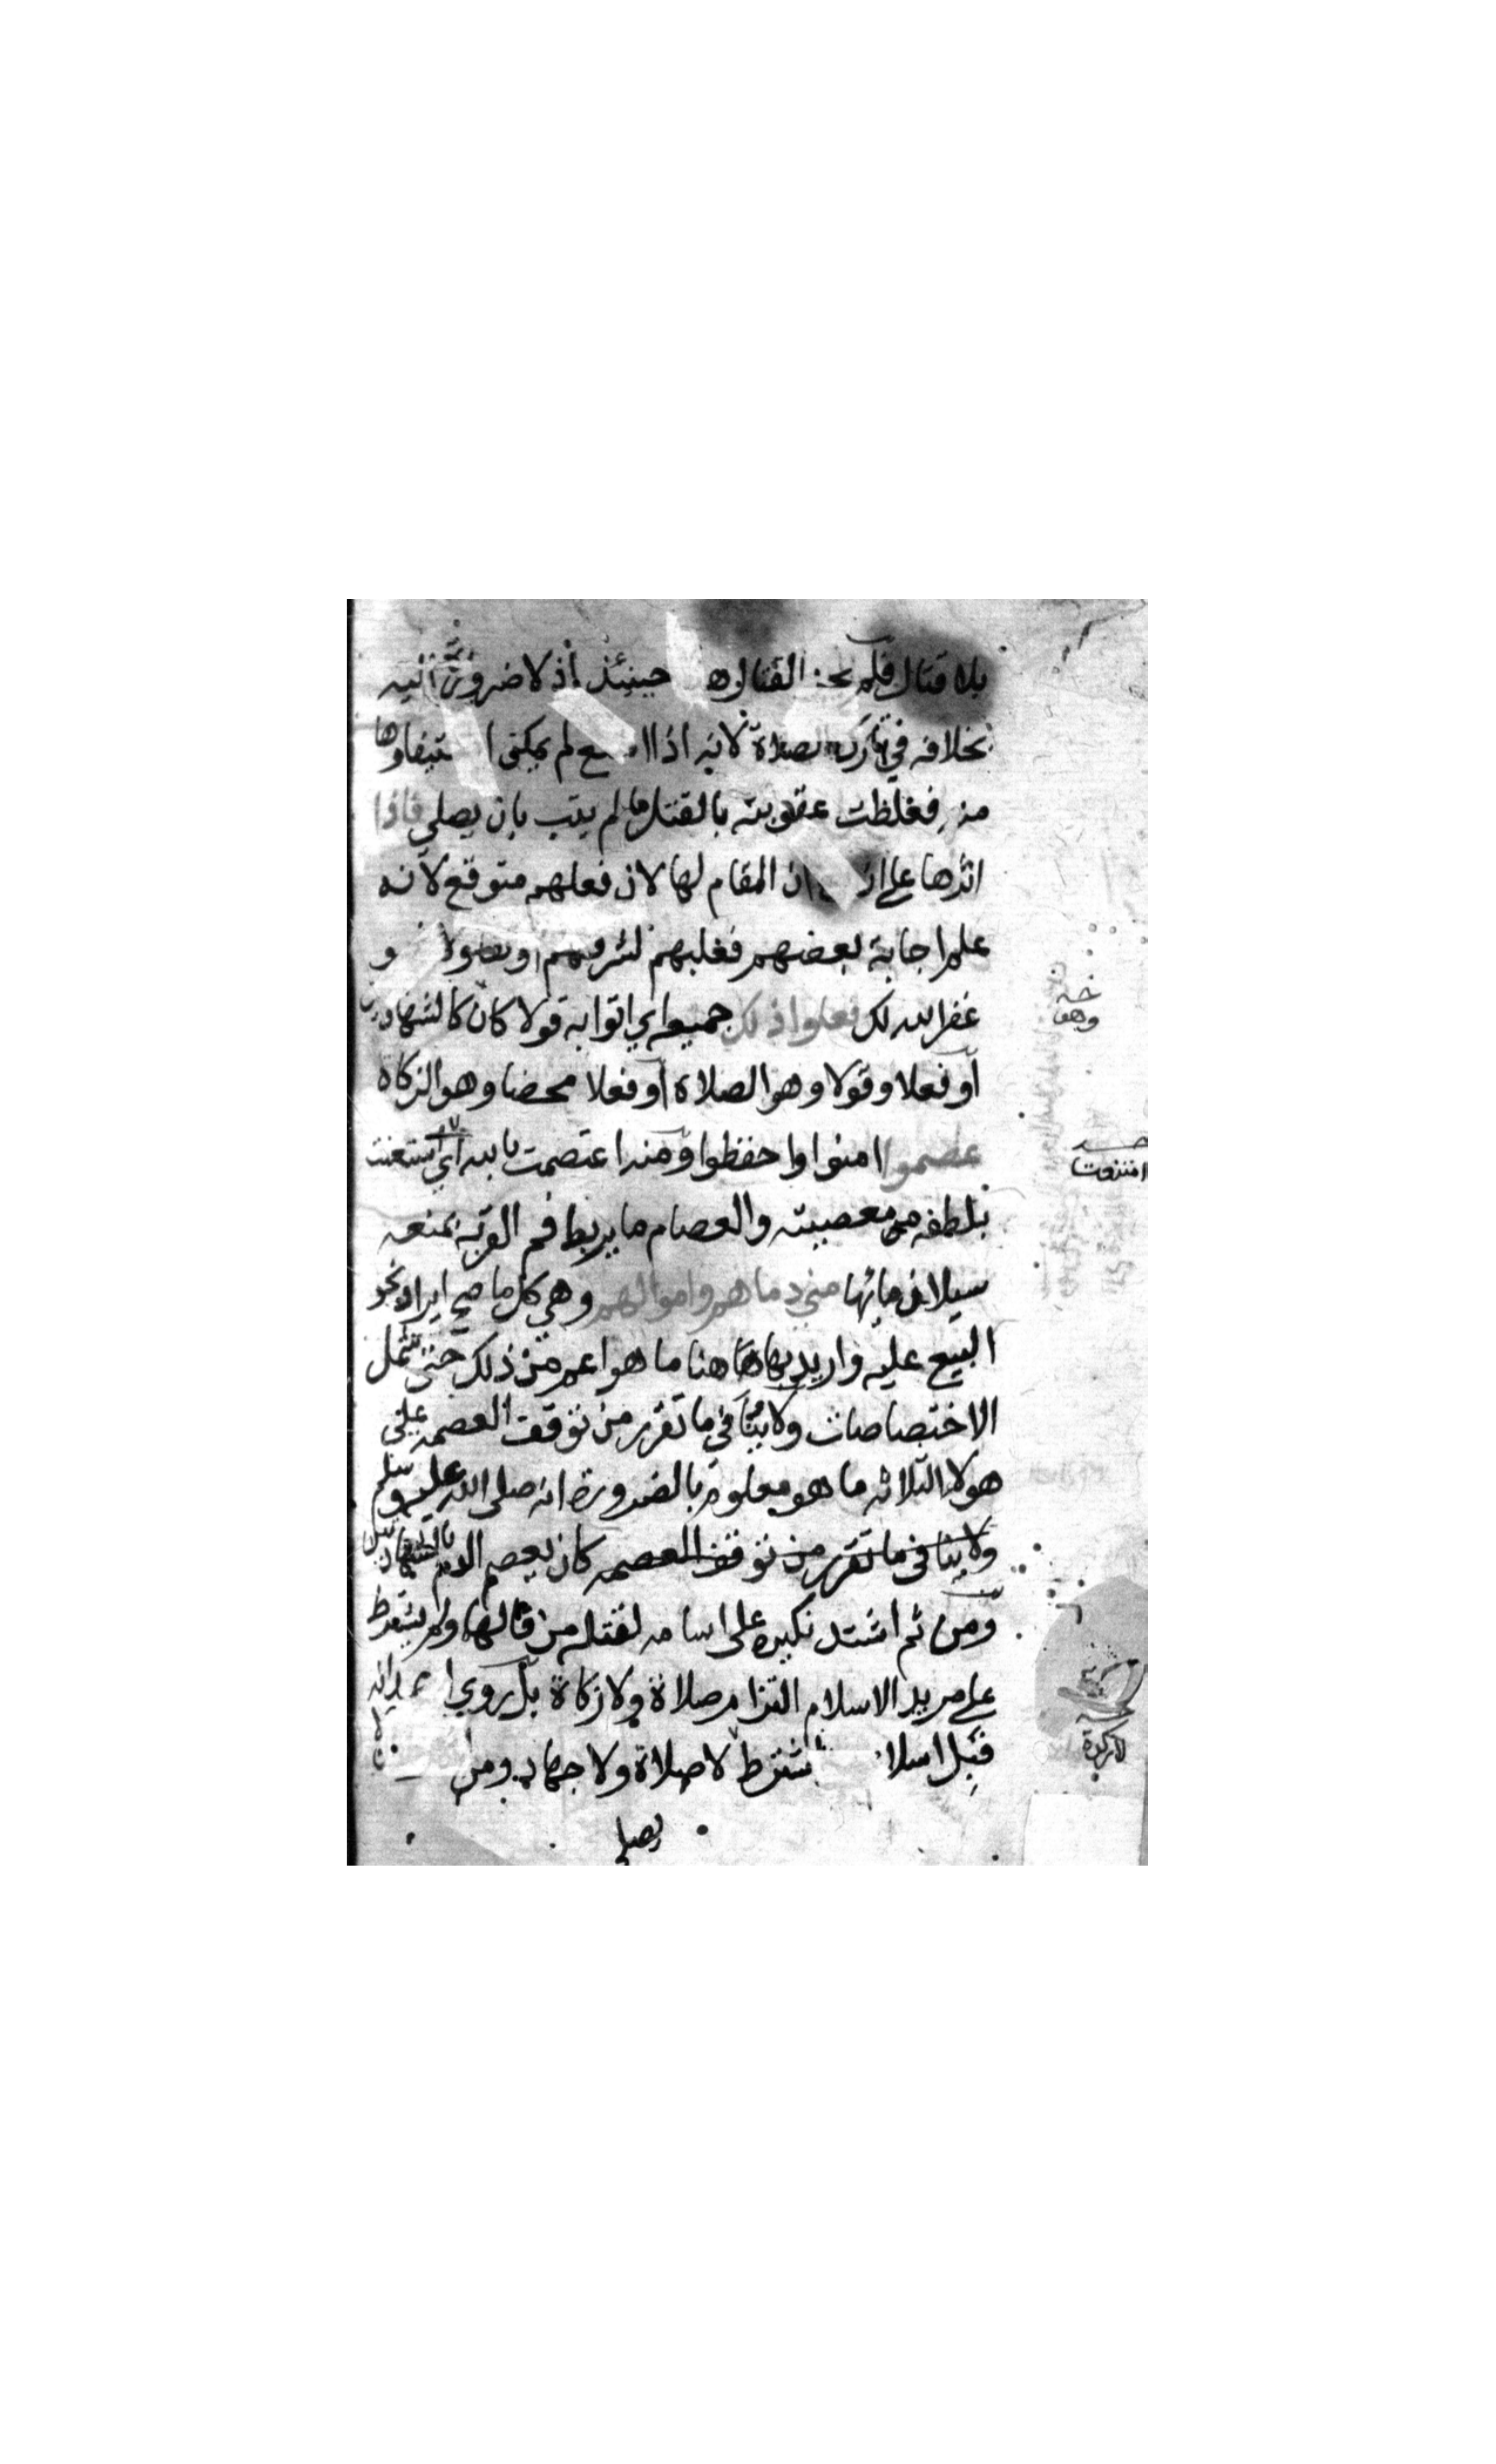 بلا قتال فلم يجز القتال حينئذ اذ لا ضرورة اليه
بخلافه في تارك الصلاة لانه اذا لم يمكن استيفاوها
منه فغلظت عقوبته بالقتل ما لم يتب بان يصلي فاذا
اثرها على ان المقام لها لان فعلهم متوقع لانه
علم اجابة بعضهم فغلبهم لشرفهم او
غفر الله لك فعلوا ذلك جميعه اي اتوا به قولا كان كالشهادتين
أو فعلا وقولا وهو الصلاة أو فعلا محضا وهو الزكاة
عصموا امنوا وا حفظوا ومنه اعتصمت بالله اي استعنت
بلطفه من معصيته والعصام ما يربط فم القربة لمنعه
سيلان مائها مني دماهم واموالهم وهي كل ما صح ايراد نحو
البيع عليه واريد بها هاهنا ما هو اعم من ذلك حتى تشمل
الاختصاصات ولا ينافي ما تقرر من توقف العصمه على
هولا الثلاثه ما هو معلوم بالضرورة انه صلى الله عليه وسلم
ولا ينافي ما تقرر من توقف العصمه كان يعصم الدم بالشهادتين
ومن ثم اشتد نكيره على اسامه لقتله من قالها ولم يشترط
على مريد الاسلام التزام صلاة ولا زكاة بل روي احمد انه
قبل اسلا شترط لا صلاة ولا جهاد ومن
يصلي
وهو
امتنعت
لا زكوة